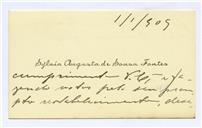 1/1/909
Sylvia Augusta de Sousa Fontes
cumpriment V. Ex., e fa-
zendo votos pelo seu prom-
pto restabelecimento, dese-